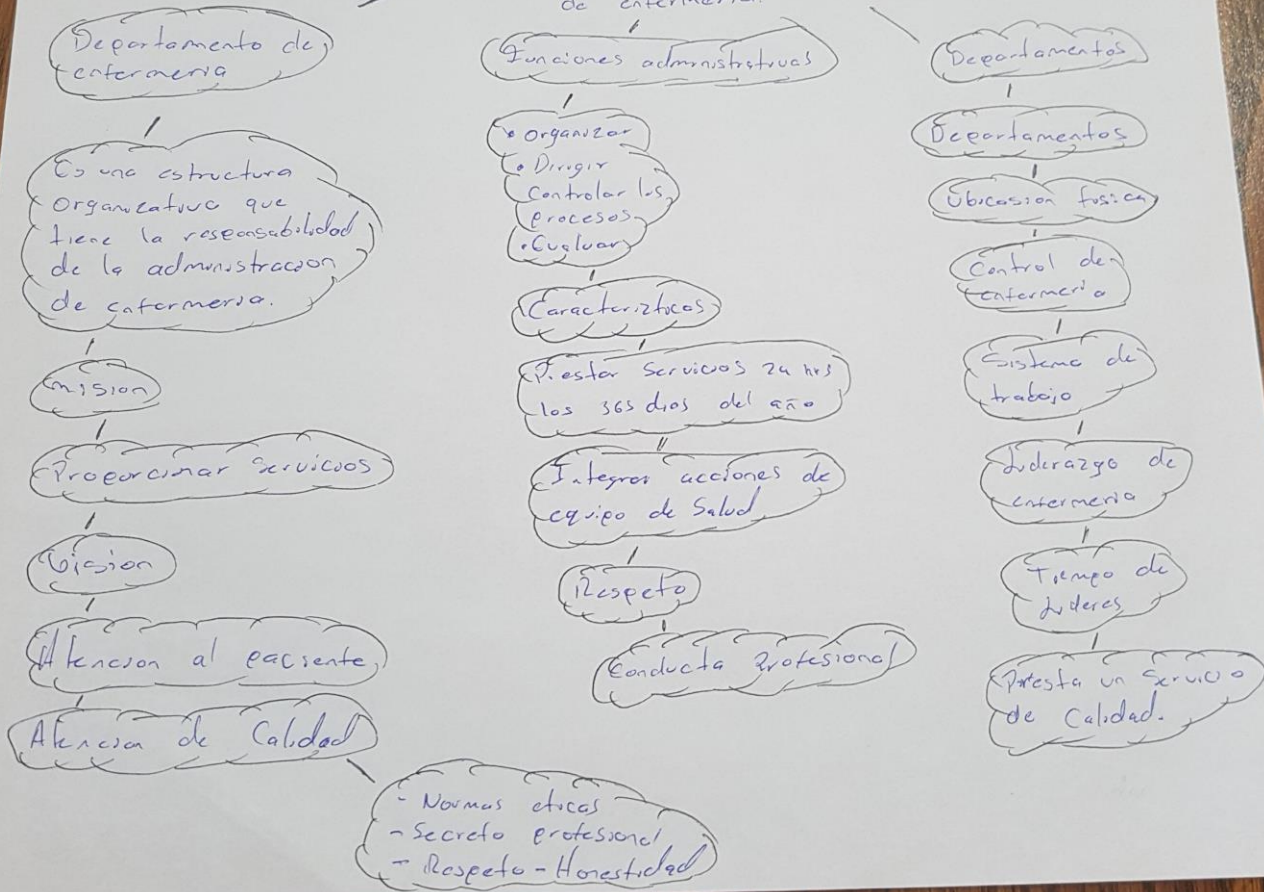 de enfermeria
Departamento de
enfermeria
Es una estructura
organizativa que
tiene la responsabilidad
de la administracion
de enfermeria.
mision
Proporcionar Servicios
Vision
Atencion al paciente
Atencion de Calidad
- Normas eticas
- Secreto profesional
- Respeto - Honestidad
Funciones administrativas
• Organizar
• Dirigir
Controlar los
procesos
• Evaluar
Caracterizticas
Prestar Servicios 24 hrs
los 365 dias del año
Integrar acciones de
equipo de Salud
Respeto
Conducta Profesional
Departamentos
Departamentos
Ubicasion fisica
Control de
enfermeria
Sistema de
trabajo
Liderazgo de
enfermeria
Tiempo de
Lideres
Presta un Servicio
de Calidad.